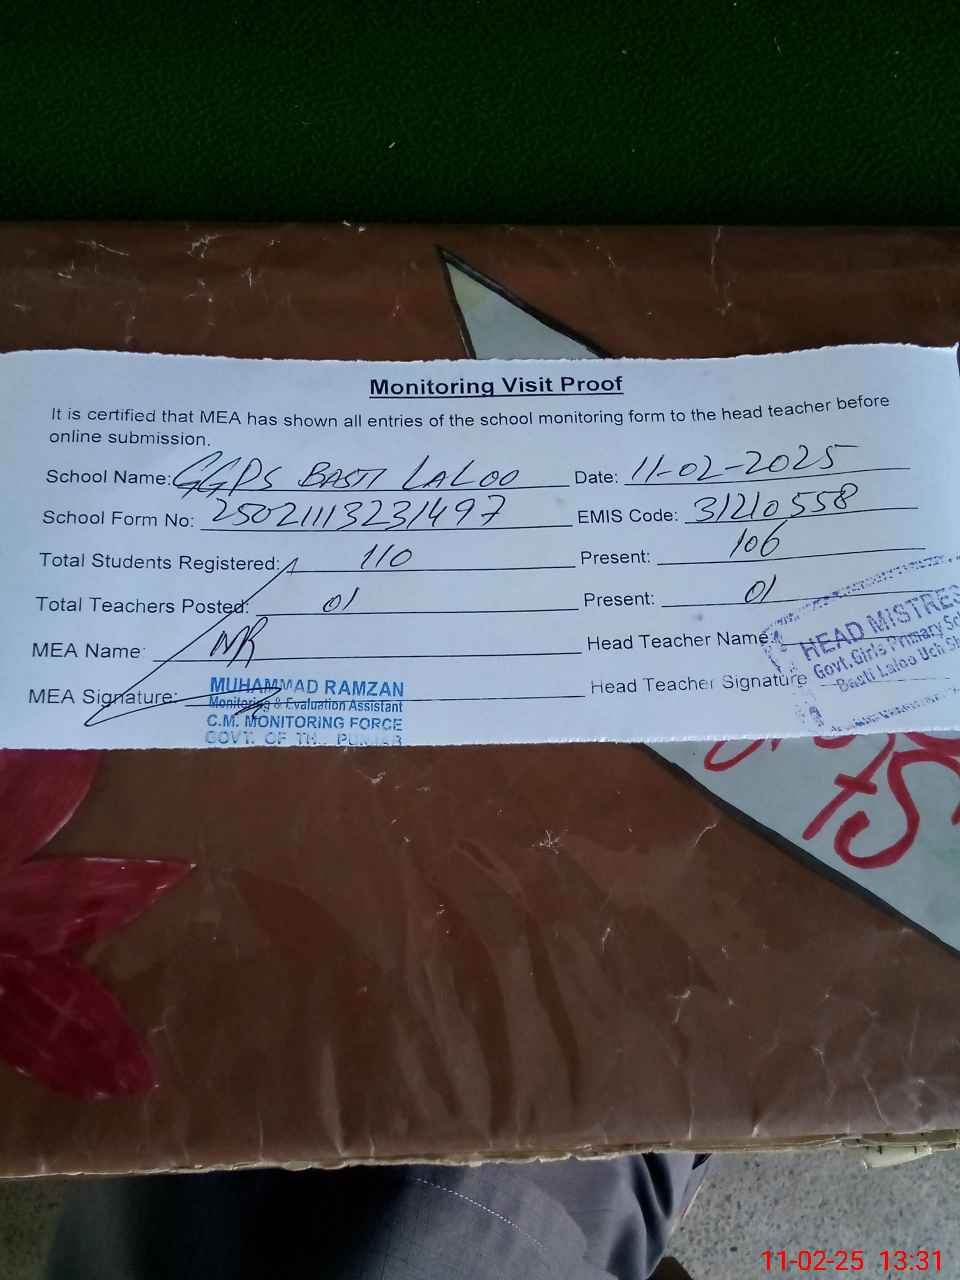 Monitoring Visit Proof
It is certified that MEA has shown all entries of the school monitoring form to the head teacher before
online submission.
School Name: GGPS BASTI LALOO Date: 11-02-2025
School Form No: 25021113231497 EMIS Code: 31210558
Total Students Registered: 110 Present: 106
Total Teachers Posted: 01 Present: 01
MEA Name: MR Head Teacher Name:
MEA Signature: Head Teacher Signature
MUHAMMAD RAMZAN
Monitoring & Evaluation Assistant
C.M. MONITORING FORCE
GOVT. OF TH. PUNJAB
HEAD MISTRES
Govt. Girls Primary Sc
Basti Laloo Uch Sh
11-02-25 13:31